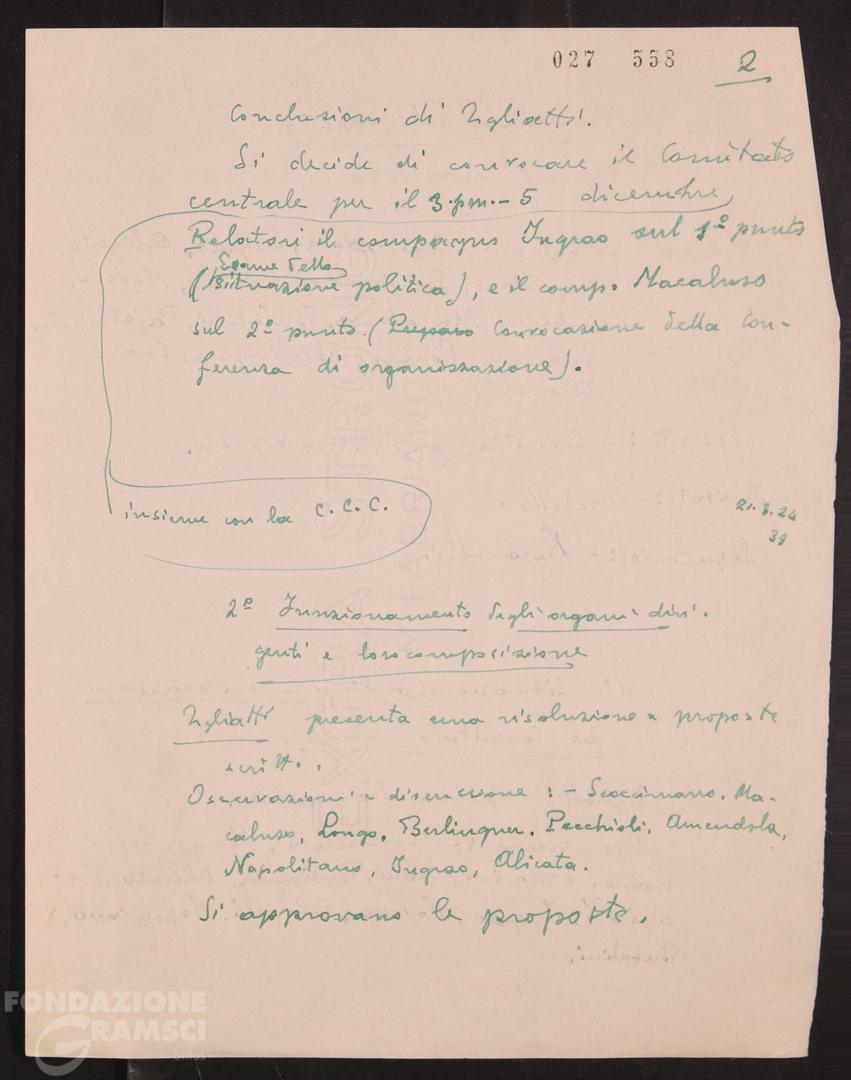 027 558 2
Conclusioni di Togliatti.
Si decide di convocare il Comitato
centrale per il 3.pm.-5 dicembre,
Relatori il compagno Ingrao sul 1º punto
Esame della
(situazione politica), e il comp. Macaluso
sul 2º punto (Prepara Convocazione della Con-
ferenza di organizzazione).
insieme con la C.C.C.
39
2º Funzionamento degli organi diri-
genti e loro composizione
Togliatti presenta una risoluzione e proposte
scritte.
Osservazioni e discussione: - Scoccimarro, Ma-
caluso, Longo, Berlinguer, Pecchioli, Amendola,
Napolitano, Ingrao, Alicata.
Si approvano le proposte.
FONDAZIONE
GRAMSCI
onlus